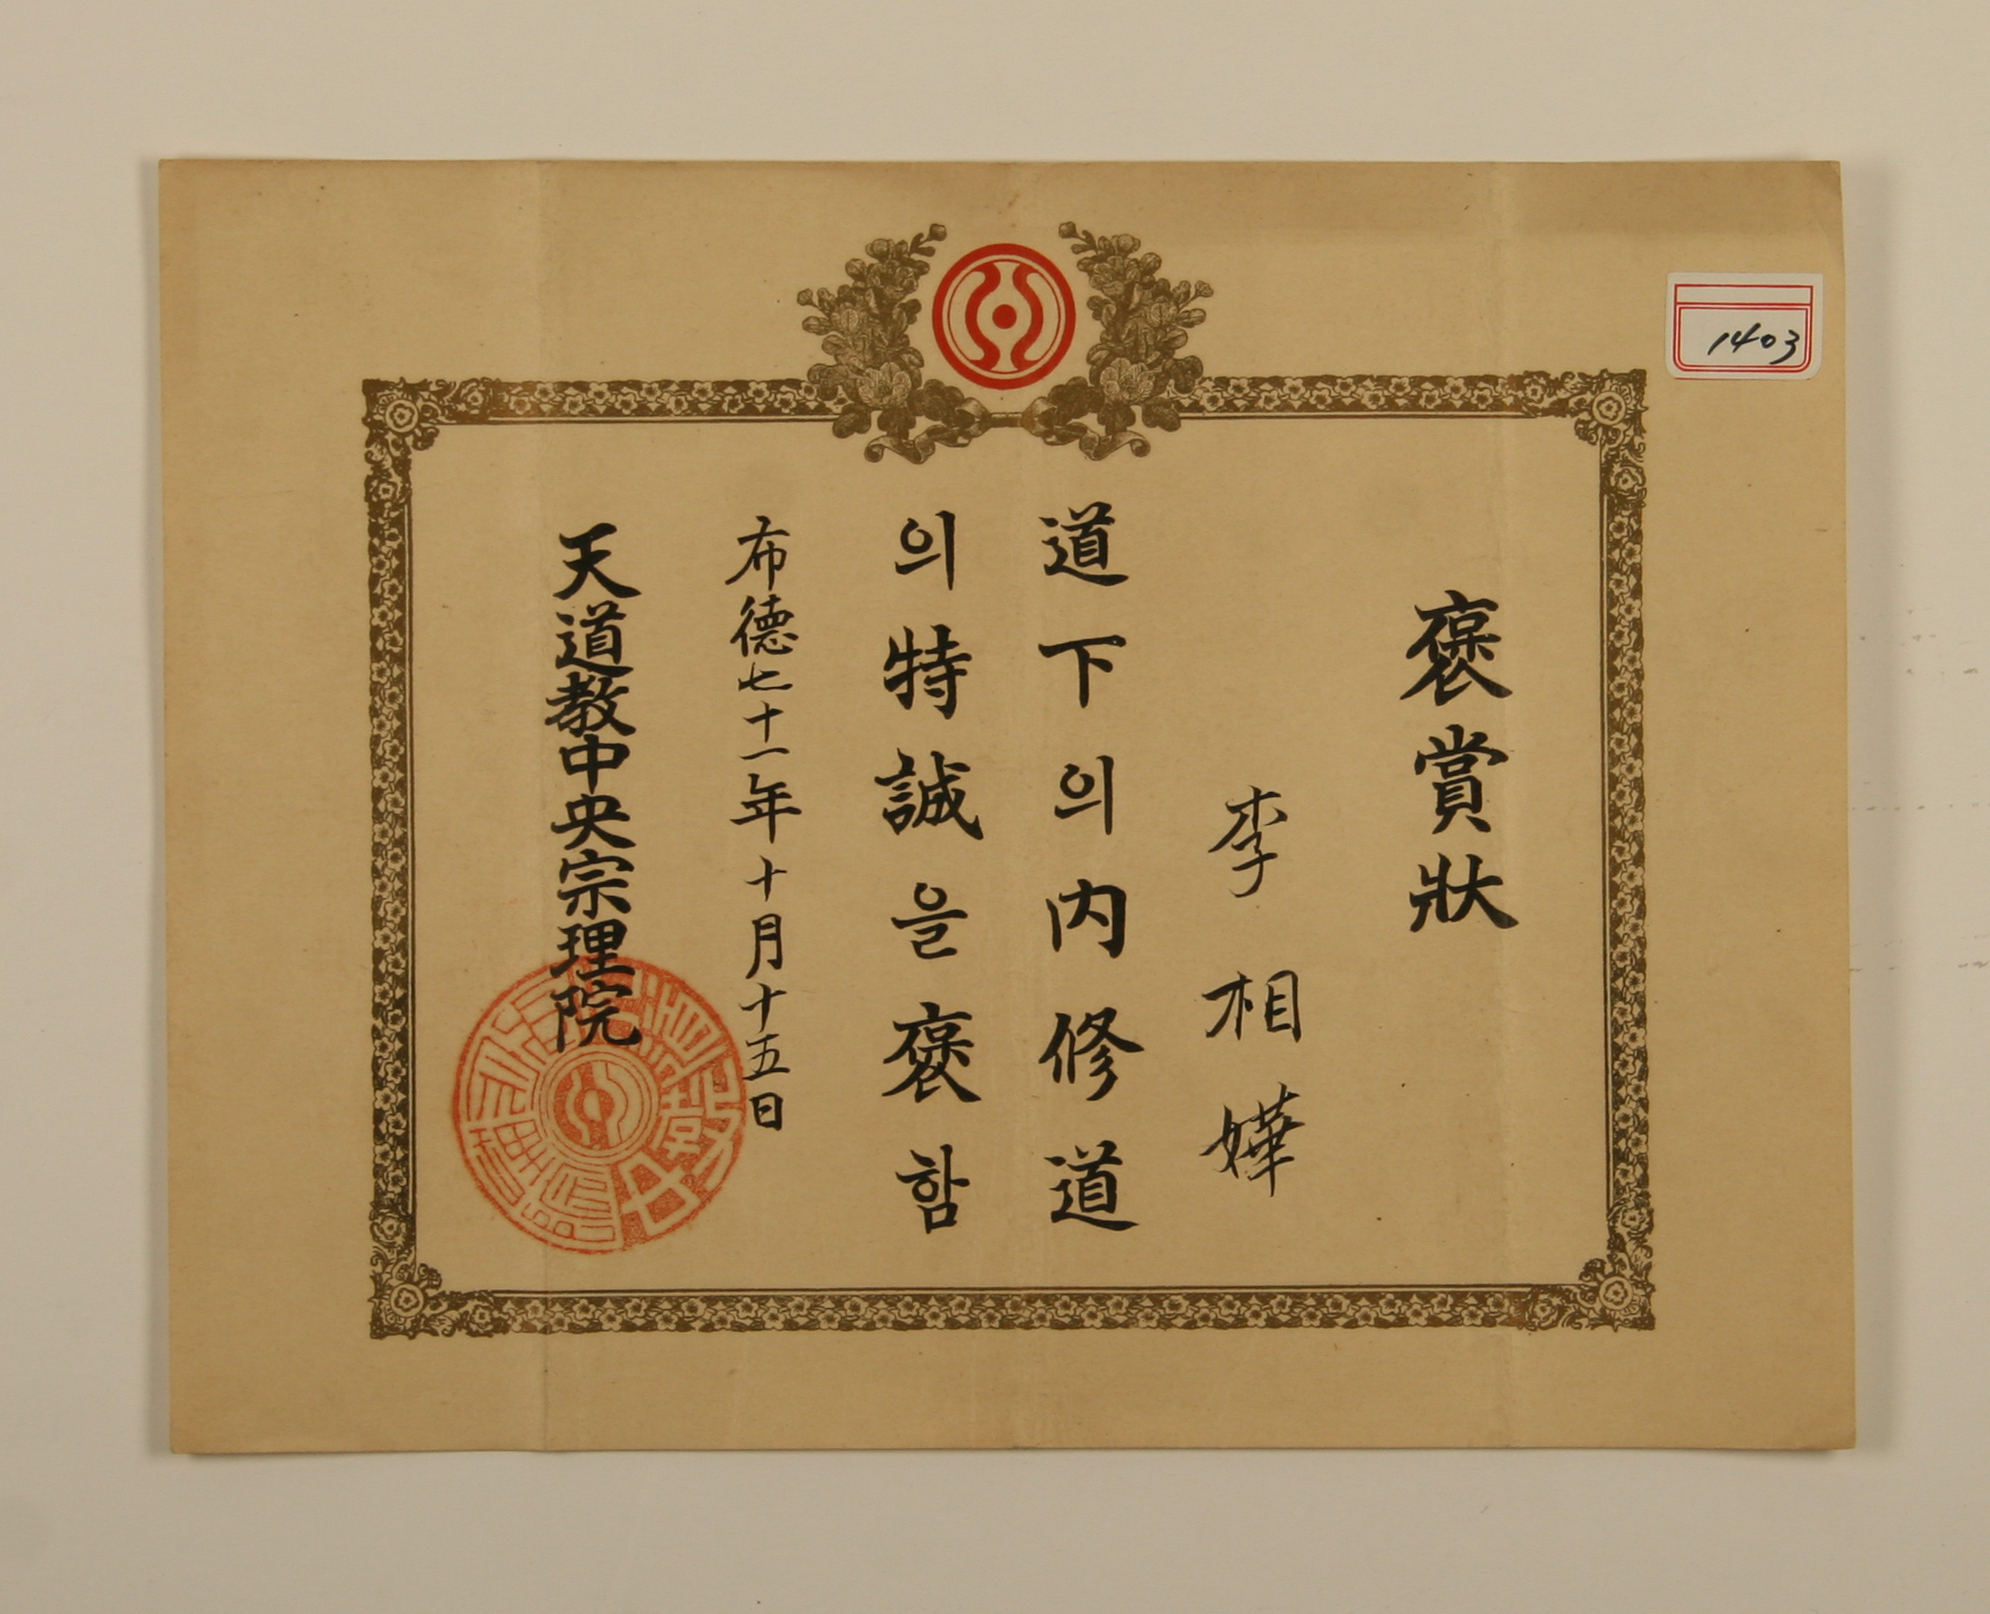 褒賞狀
李相嬅
道下의內修道
의特誠을褒함
布德七十一年十月十五日
天道教中央宗理院
1403